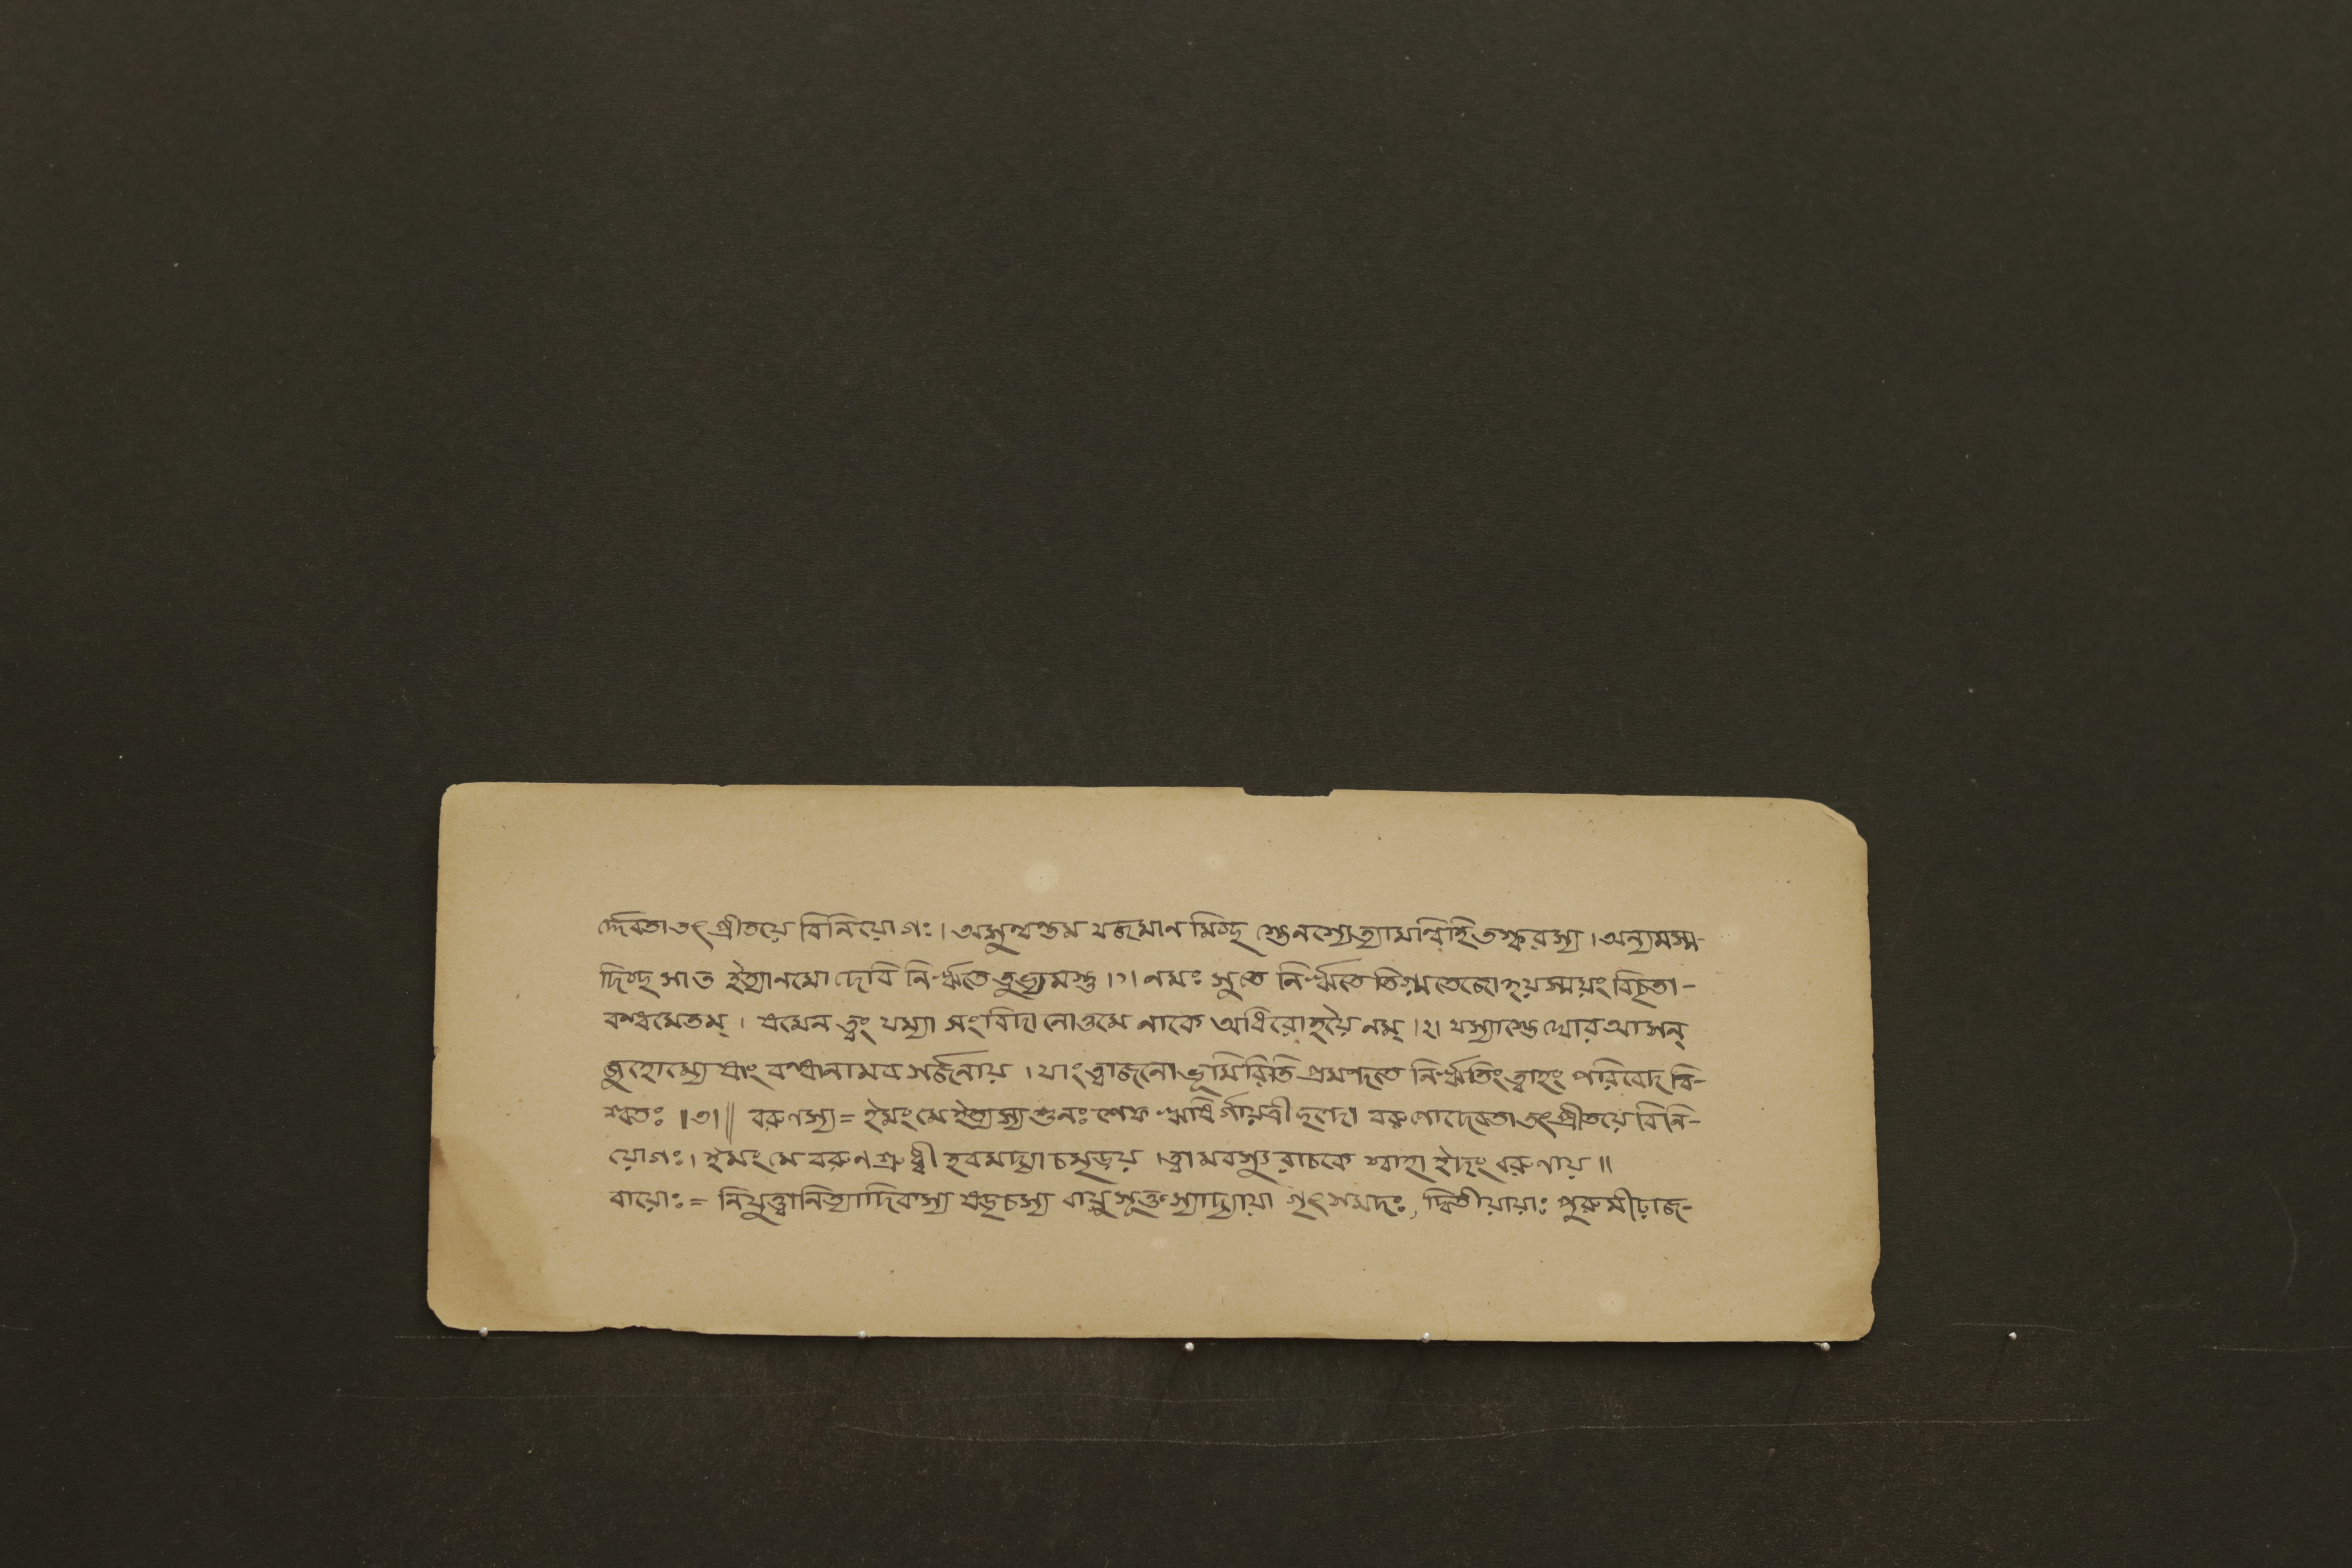 র্দ্দেবতা তৎ প্রীতয়ে বিনিয়োগঃ। অসুন্বন্তম যজমান মিচ্ছ স্তেনস্যেত্যামন্বিহি তস্করস্য। অন্যমস্ম-
দিচ্ছ সা ত ইত্যা নমো দেবি নিৰ্ঋতে তুভ্যমস্তু।১। নমঃ সুতে নিৰ্ঋতে তিগ্মতেজো হয়স্ময়ং বিচৃতা-
বন্ধমেতম্। যমেন ত্বং যম্যা সংবিদা নোত্তমে নাকে অধিরোহয়ৈ নম্।২। যস্যাস্তে ঘোর আসন্
জুহোম্যেষাং বন্ধানামব সর্জ্জনায়। যাং ত্বাজনো ভূমিরিতি প্রমন্দতে নিৰ্ঋতিং ত্বাহং পরিবেদ বি-
শ্বতঃ।৩।॥ বরুণস্য= ইমং মে ইত্যস্য শুনঃ শেফ ঋষির্গায়ত্রী ছন্দো বরুণোদেবতা তৎ প্রীতয়ে বিনি-
য়োগঃ। ইমং মে বরুণ শ্রুধী হবমদ্যা চমৃড়য়। ত্বামবস্যু রাচকে স্বাহা ইদং বরুণায়॥
বায়োঃ= নিযুত্বানিত্যাদিকস্য ষড়ৃচস্য বায়ুসূক্তস্যাদ্যায়া গৃৎসমদঃ, দ্বিতীয়ায়াঃ পুরুমীঢ়াজ-